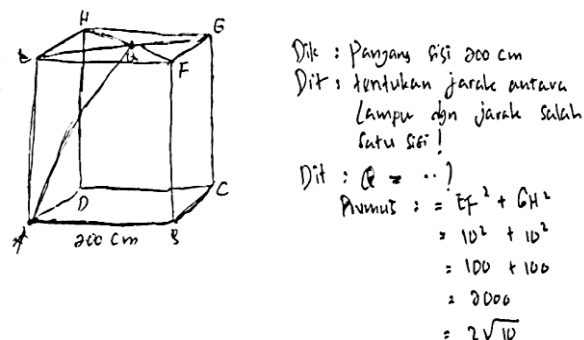 H
G
E
F
D
C
A
B
200 cm
Dik : Panjang sisi 200 cm
Dit : tentukan jarak antara
Lampu dgn jarak salah
satu sisi !
Dit : Q = .. ?
Rumus : = EF² + GH²
= 10² + 10²
= 100 + 100
= 2000
= 2√10